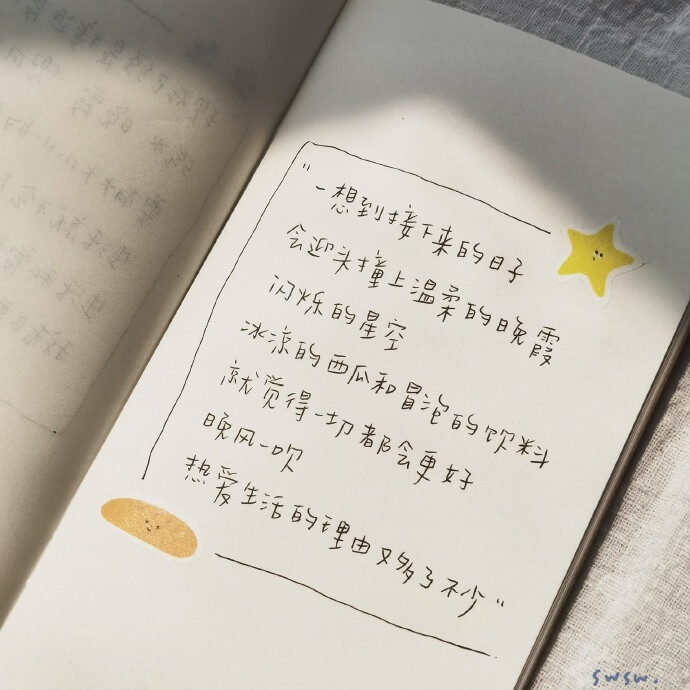 "一想到接下来的日子
会迎头撞上温柔的晚霞
闪烁的星空
冰凉的西瓜和冒泡的饮料
就觉得一切都会更好
晚风一吹
热爱生活的理由又多了不少"
swsw.